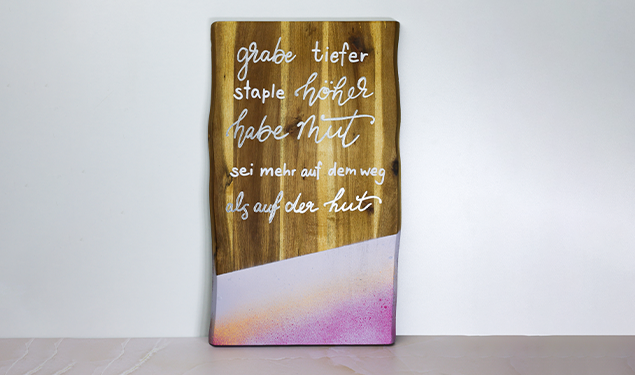 grabe tiefer
staple höher
habe Mut
sei mehr auf dem weg
als auf der hut